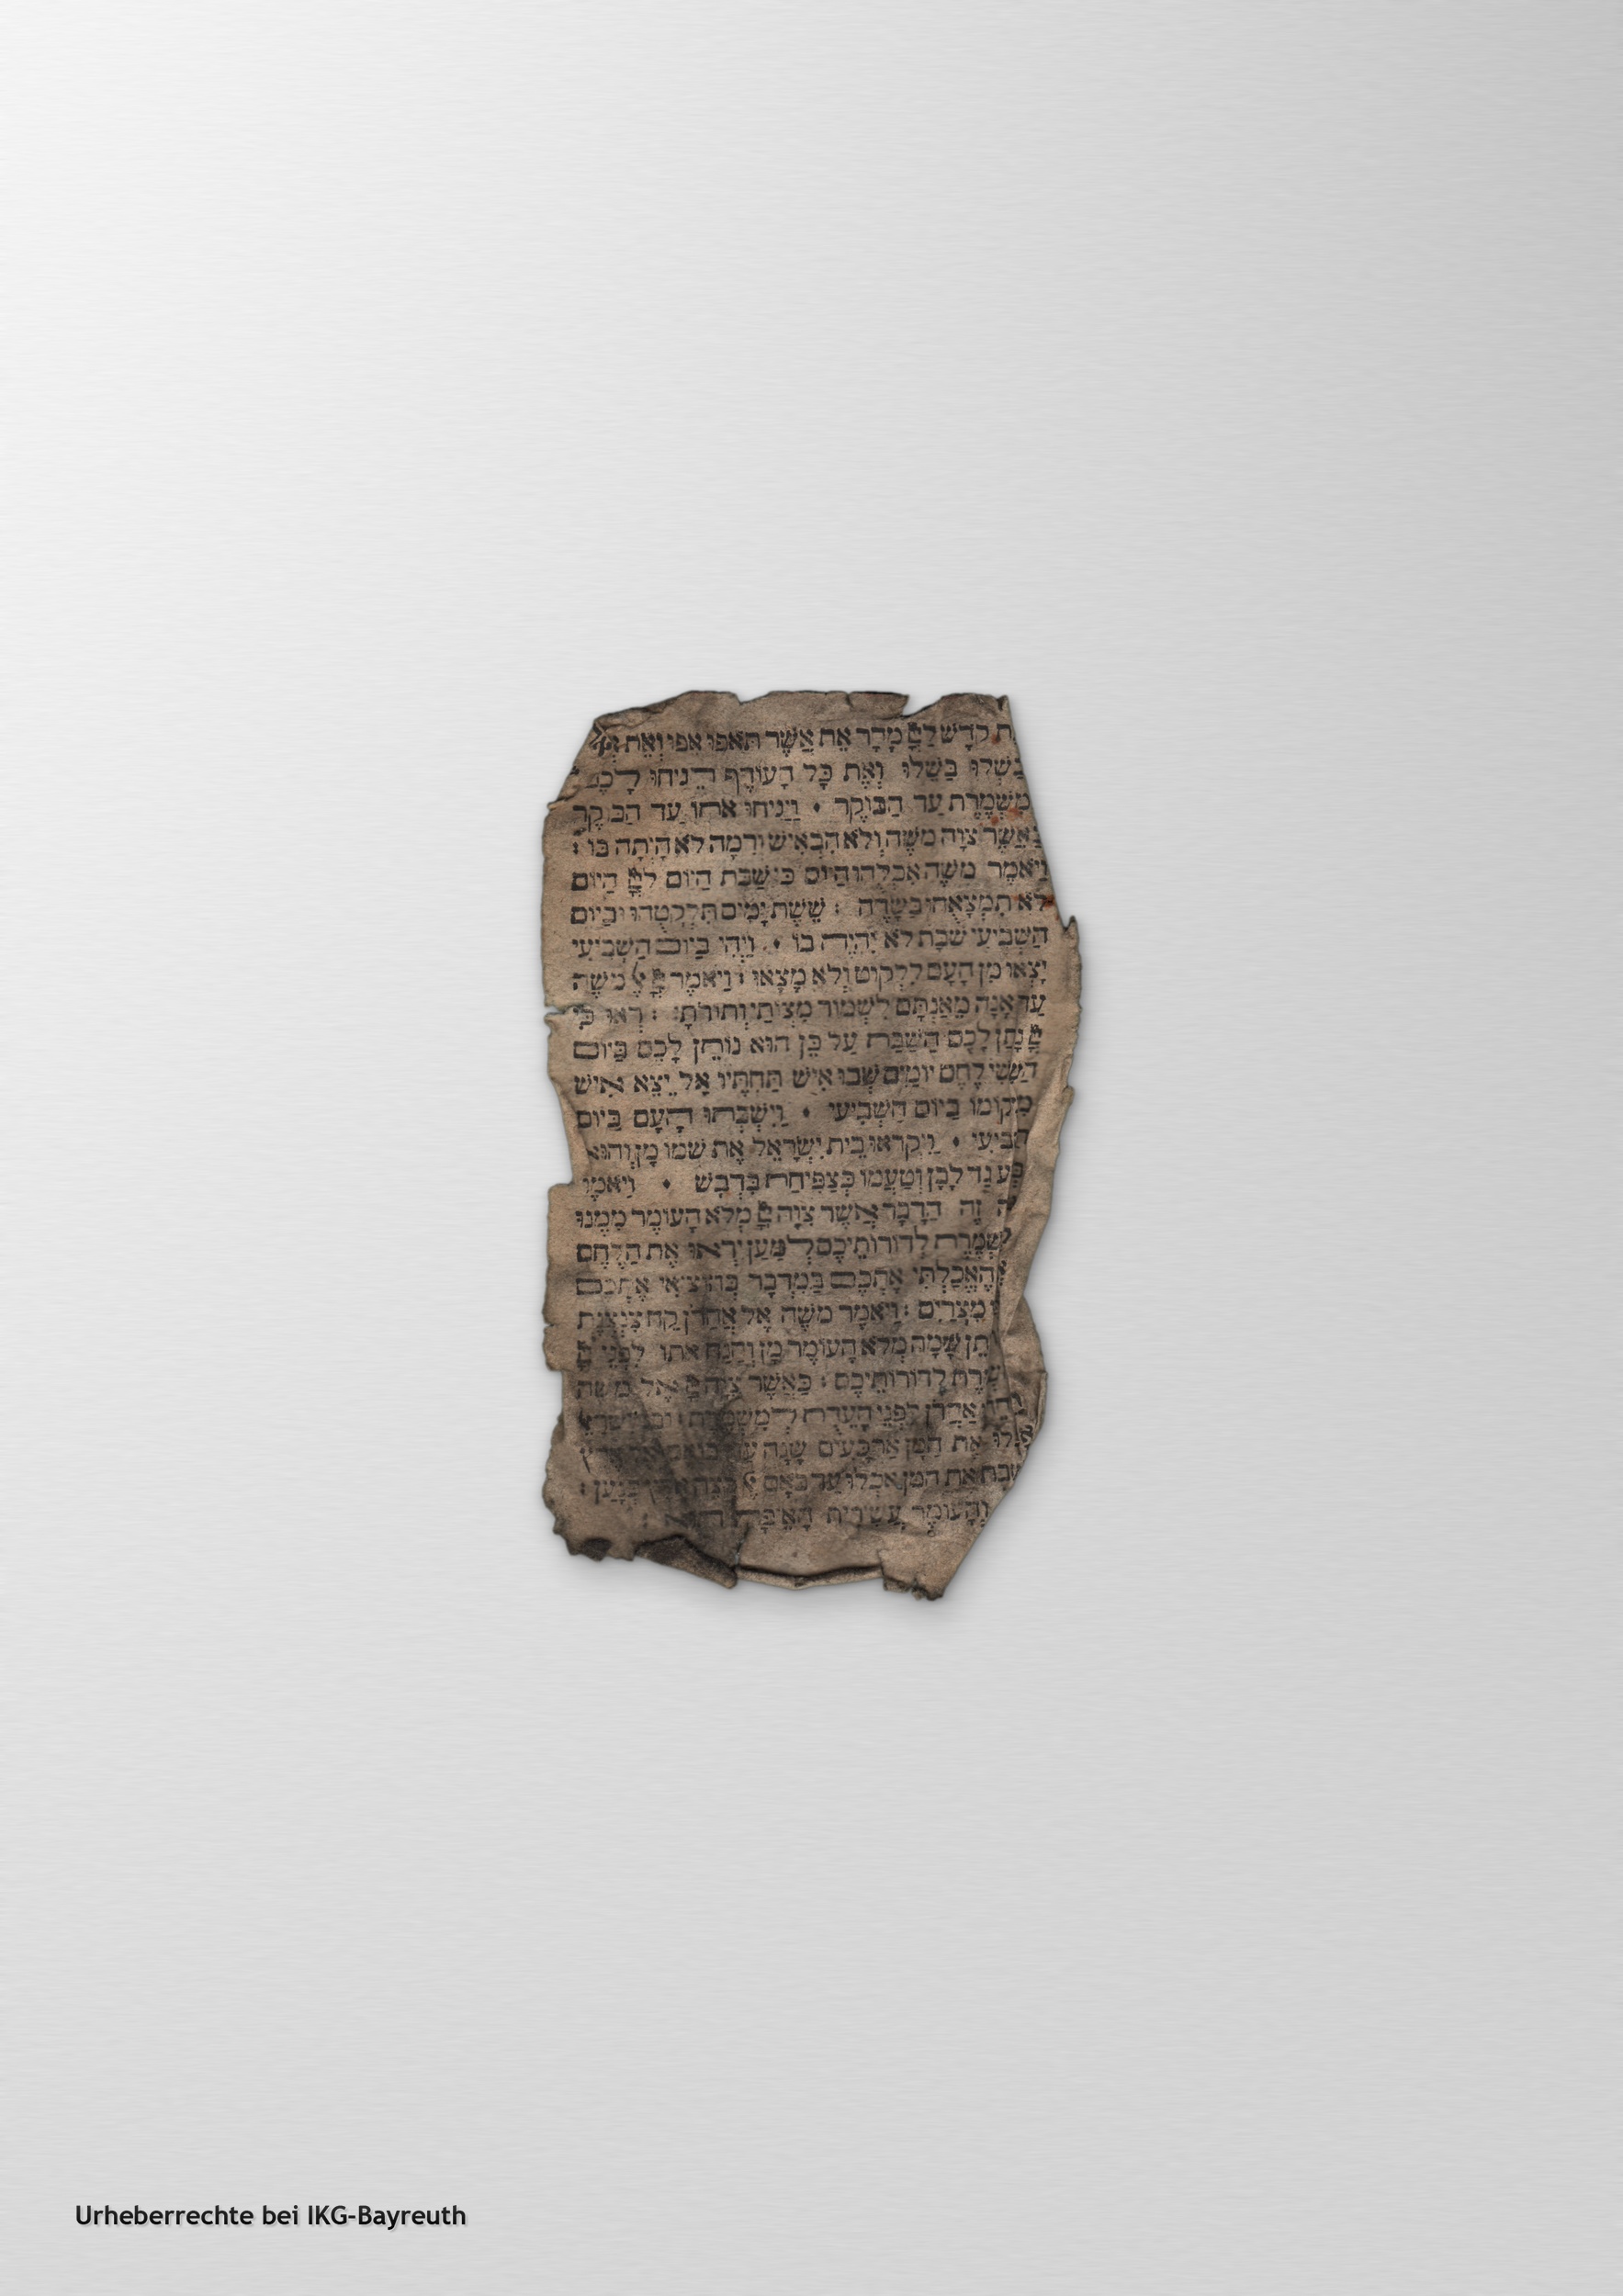 קדש מחר את אשר תאפו אפו ואת
בשלו בשלו ואת כל העודף הניחו לכם
משמרת עד הבוקר ♦ ויניחו אתו עד הבוקר
כאשר צוה משה ולא הבאיש ורמה לא היתה בו :
ויאמר משה אכלהו היום כי שבת היום היום
לא תמצאהו בשדה : ששת ימים תלקטהו וביום
השביעי שבת לא יהיה בו ♦ ויהי ביום השביעי
יצאו מן העם ללקוט ולא מצאו : ויאמר משה
עד אנה מאנתם לשמור מצותי ותורתי : ראו כי
נתן לכם השבת על כן הוא נותן לכם ביום
הששי לחם יומים שבו איש תחתיו אל יצא איש
מקומו ביום השביעי ♦ וישבתו העם ביום
♦ ויקראו בית ישראל את שמו מן והוא
גד לבן וטעמו כצפיחת בדבש ♦ ויאמר
זה הדבר אשר צוה מלא העומר ממנו
למשמרת לדורותיכם למען יראו את הלחם
האכלתי אתכם במדבר בהוציאי אתכם
מצרים : ויאמר משה אל אהרן קח צנצנת
ותן שמה מלא העומר מן והנח אתו לפני
לדורותיכם : כאשר צוה אל משה
אהרן לפני העדת למשמרת :
אכלו את המן ארבעים שנה עד
את המן אכלו עד באם אל קצה ארץ כנען :
והעומר עשירית האיפה הוא :
Urheberrechte bei IKG-Bayreuth